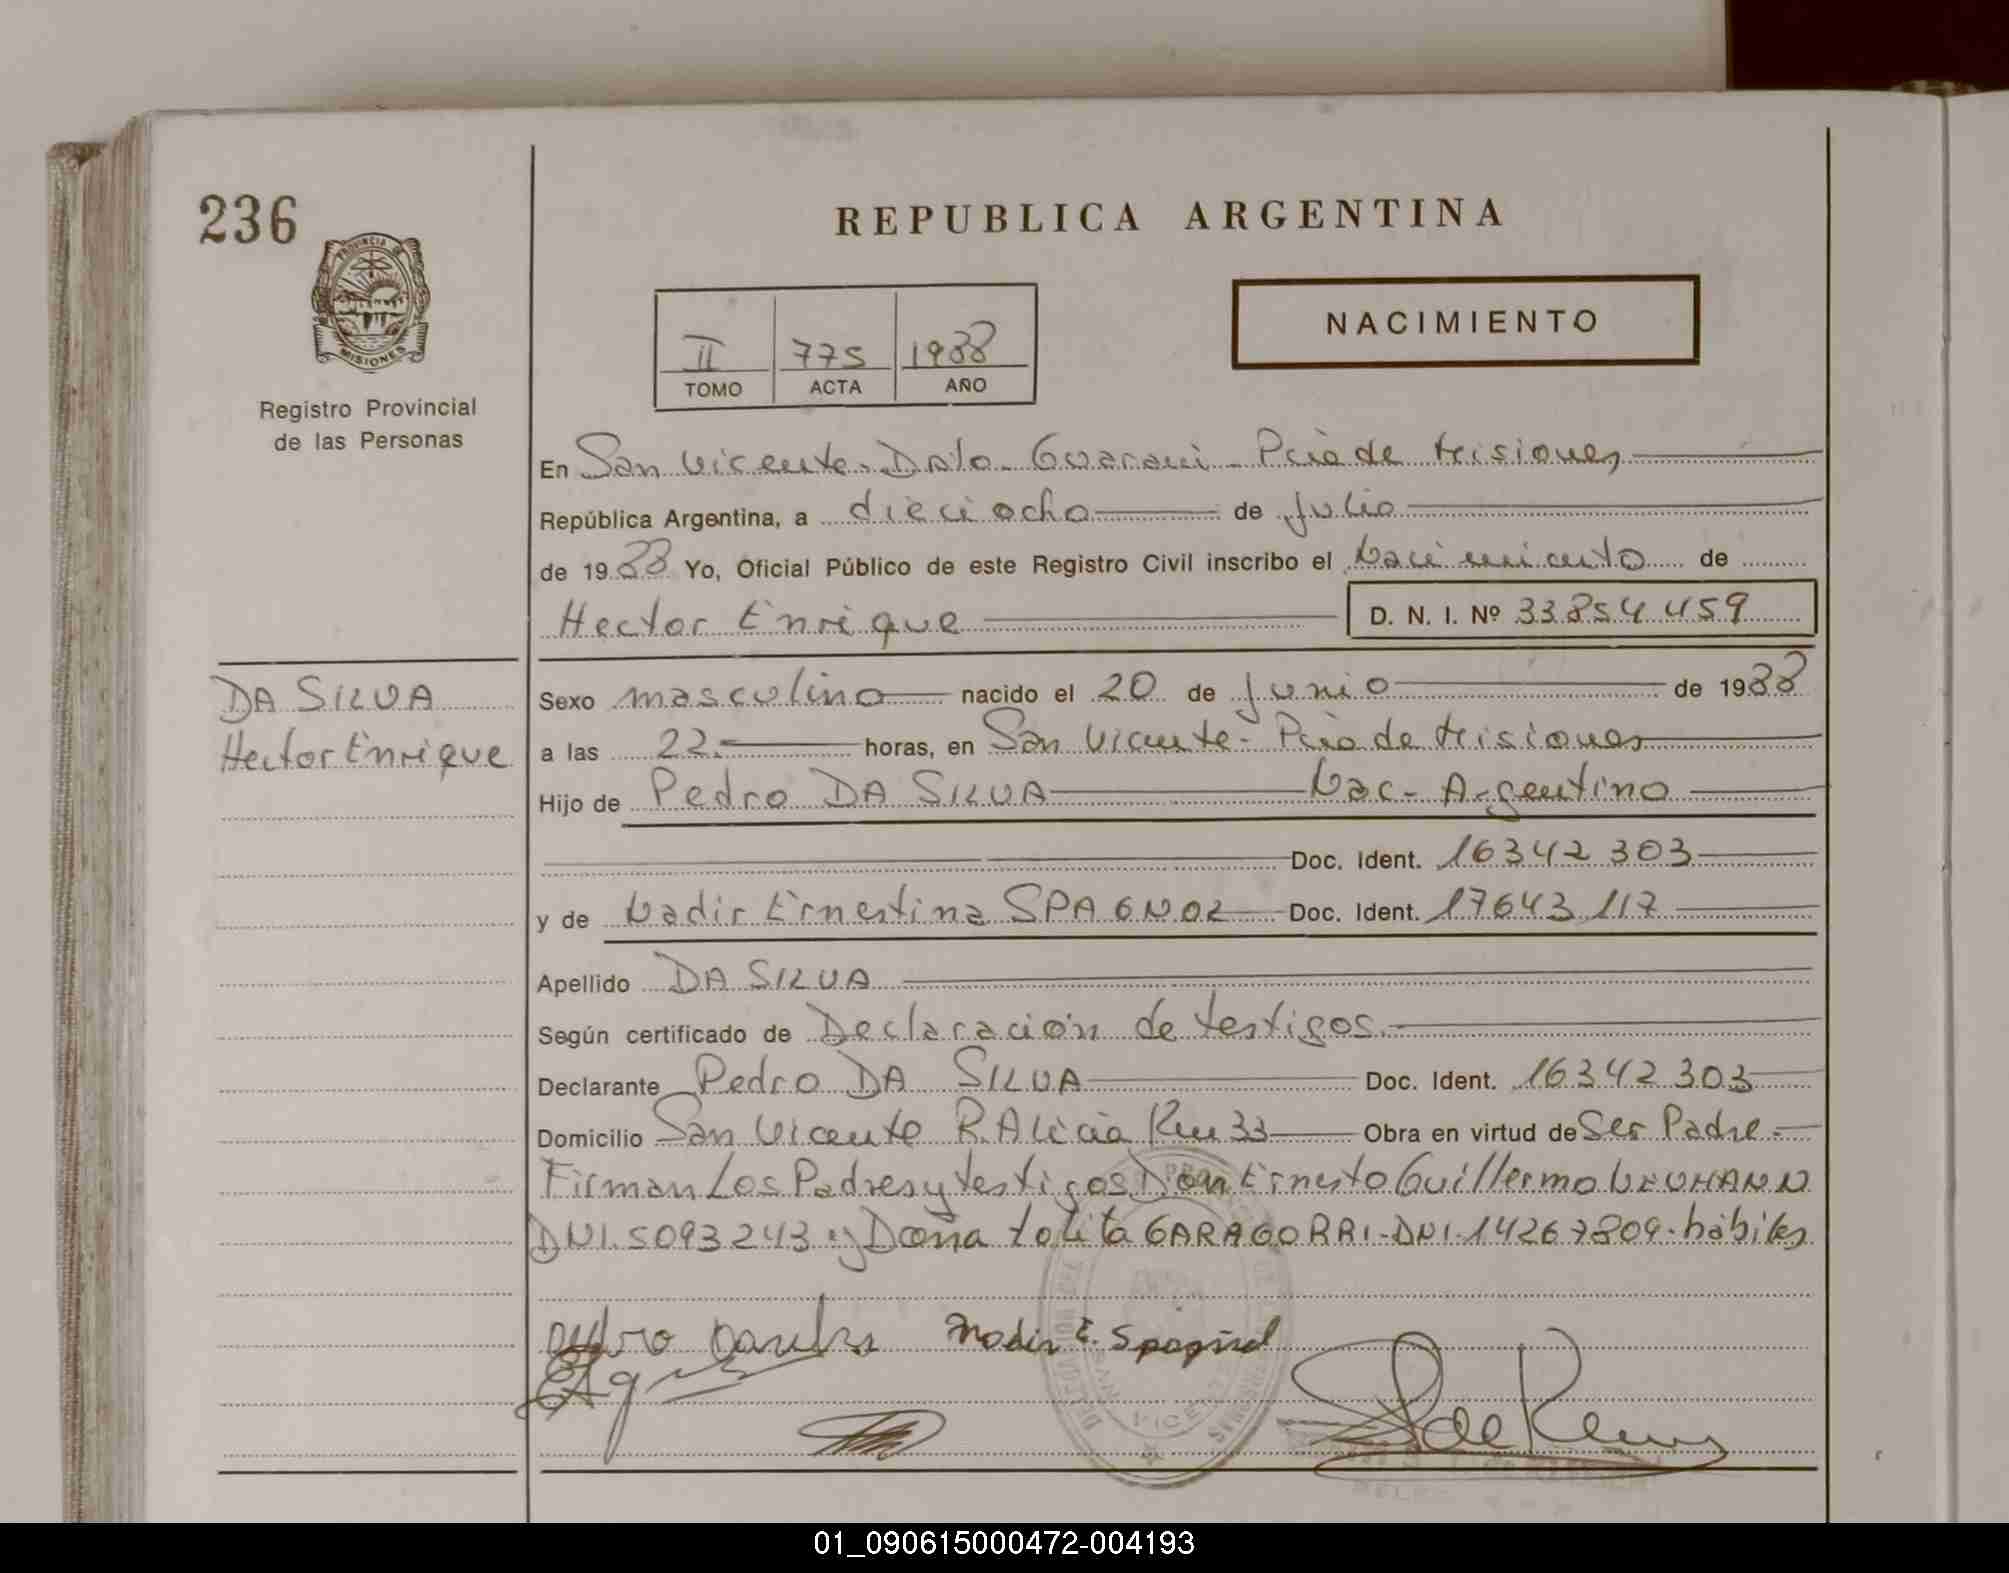 236
REPUBLICA ARGENTINA
PROVINCIA DE
MISIONES
NACIMIENTO
II 775 1988
TOMO ACTA AÑO
Registro Provincial
de las Personas
En San Vicente - Dpto - Guarani - Pcia de Misiones
República Argentina, a dieciocho de Julio
de 1988 Yo, Oficial Público de este Registro Civil inscribo el Nacimiento de
Hector Enrique D. N. I. Nº 33.854.459
DA SILVA
Hector Enrique
Sexo masculino nacido el 20 de Junio de 1988
a las 22.- horas, en San Vicente - Pcia de Misiones
Hijo de Pedro DA SILVA Nac - Argentino
Doc. Ident. 16342303
y de Nadir Ernestina SPAGNOL Doc. Ident. 17643117
Apellido DA SILVA
Según certificado de Declaración de testigos.-
Declarante Pedro DA SILVA Doc. Ident. 16342303
Domicilio San Vicente R. Alicia Km 33 Obra en virtud de Ser Padre.-
Firman Los Padres y testigos Don Ernesto Guillermo
DNI. 5093243 y Doña Lolita GARAGORRI - DNI. 14267809 - hábiles
Nadir E. Spagnol
01_090615000472-004193